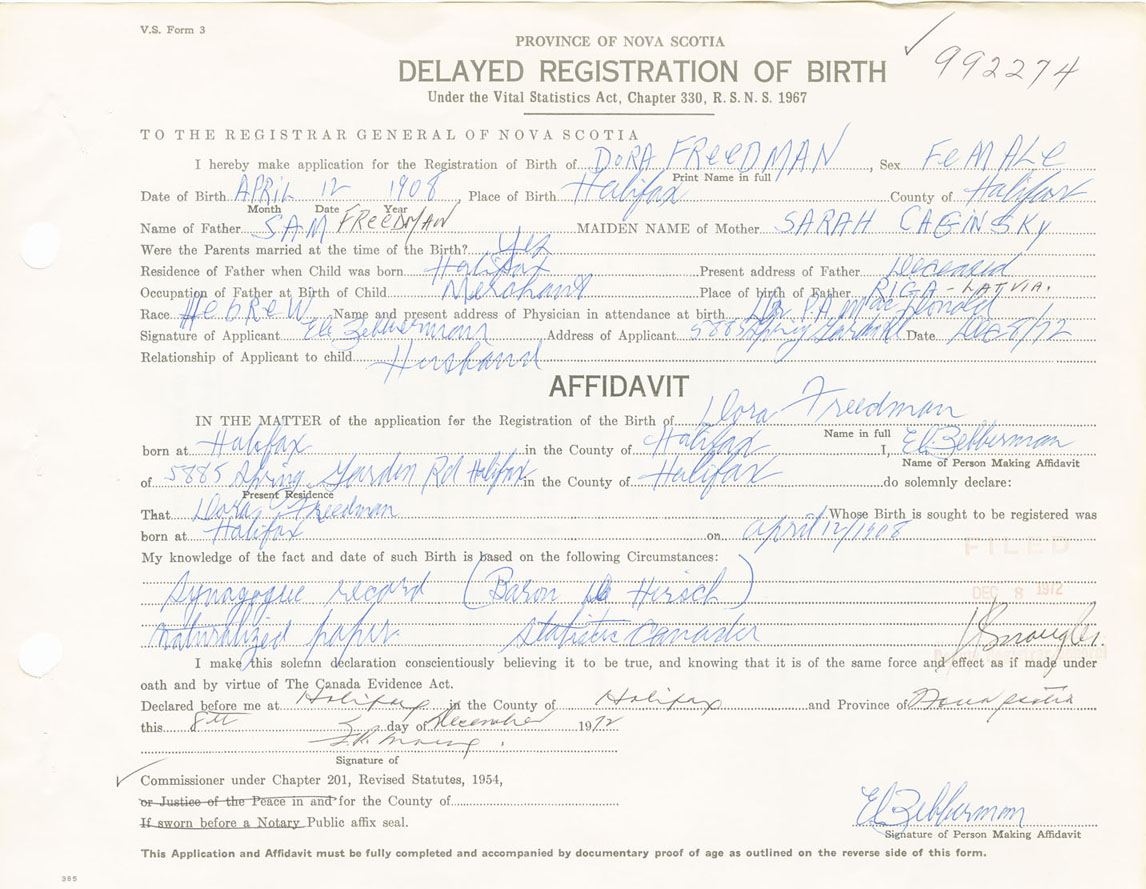 V.S. Form 3
PROVINCE OF NOVA SCOTIA
992274
DELAYED REGISTRATION OF BIRTH
Under the Vital Statistics Act, Chapter 330, R. S. N. S. 1967
TO THE REGISTRAR GENERAL OF NOVA SCOTIA
I hereby make application for the Registration of Birth of DORA FREEDMAN, Sex FEMALE
Print Name in full
Date of Birth APRIL 12 1908, Place of Birth Halifax County of Halifax
Month Date Year
Name of Father SAM FREEDMAN MAIDEN NAME of Mother SARAH CAGINSKY
Were the Parents married at the time of the Birth? Yes
Residence of Father when Child was born Halifax Present address of Father Deceased
Occupation of Father at Birth of Child Merchant Place of birth of Father RIGA - LATVIA.
Race HEBREW Name and present address of Physician in attendance at birth Dr P.A. MacDonald
Signature of Applicant Eli Zebberman Address of Applicant 5885 Spring Garden Rd Date Dec 8/72
Relationship of Applicant to child Husband
AFFIDAVIT
IN THE MATTER of the application for the Registration of the Birth of Dora Freedman
Name in full
born at Halifax in the County of Halifax I, Eli Zebberman
Name of Person Making Affidavit
of 5885 Spring Garden Rd Halifax in the County of Halifax do solemnly declare:
Present Residence
That Dora Freedman Whose Birth is sought to be registered was
born at Halifax on April 12/1908
FILED
My knowledge of the fact and date of such Birth is based on the following Circumstances:
Synagogue record (Baron de Hirsch)
DEC 8 1972
naturalized paper Statistic Canada
I make this solemn declaration conscientiously believing it to be true, and knowing that it is of the same force and effect as if made under
oath and by virtue of The Canada Evidence Act.
Declared before me at Halifax in the County of Halifax and Province of Nova Scotia
this 8th day of December 1972
Signature of
Commissioner under Chapter 201, Revised Statutes, 1954,
or Justice of the Peace in and for the County of
If sworn before a Notary Public affix seal.
Eli Zebberman
Signature of Person Making Affidavit
This Application and Affidavit must be fully completed and accompanied by documentary proof of age as outlined on the reverse side of this form.
385